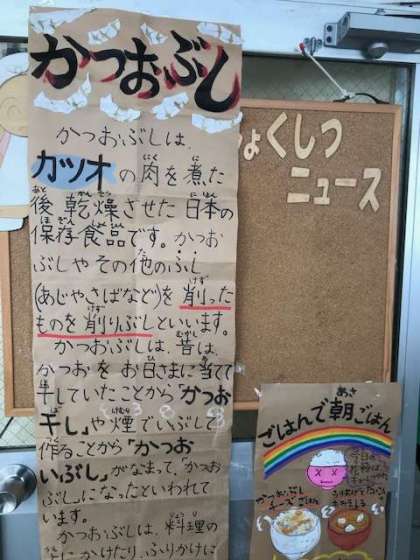 かつおぶし
かつおぶしは、
カツオの肉を煮た
後乾燥させた日本の
保存食品です。かつお
ぶしやその他のふし
(あじやさばなど)を削った
ものを削りぶしといいます。
かつおぶしは、昔は、
かつおをお日さまに当てて
干していたことから「かつお
干し」や煙でいぶして
作ることから「かつお
いぶし」がなまって、「かつお
ぶし」になったといわれて
います。
かつおぶしは、料理の
にかけたり、ふりかけに
ょくしつ
ニュース
ごはんで朝ごはん
かつおぶし
チーズごはん